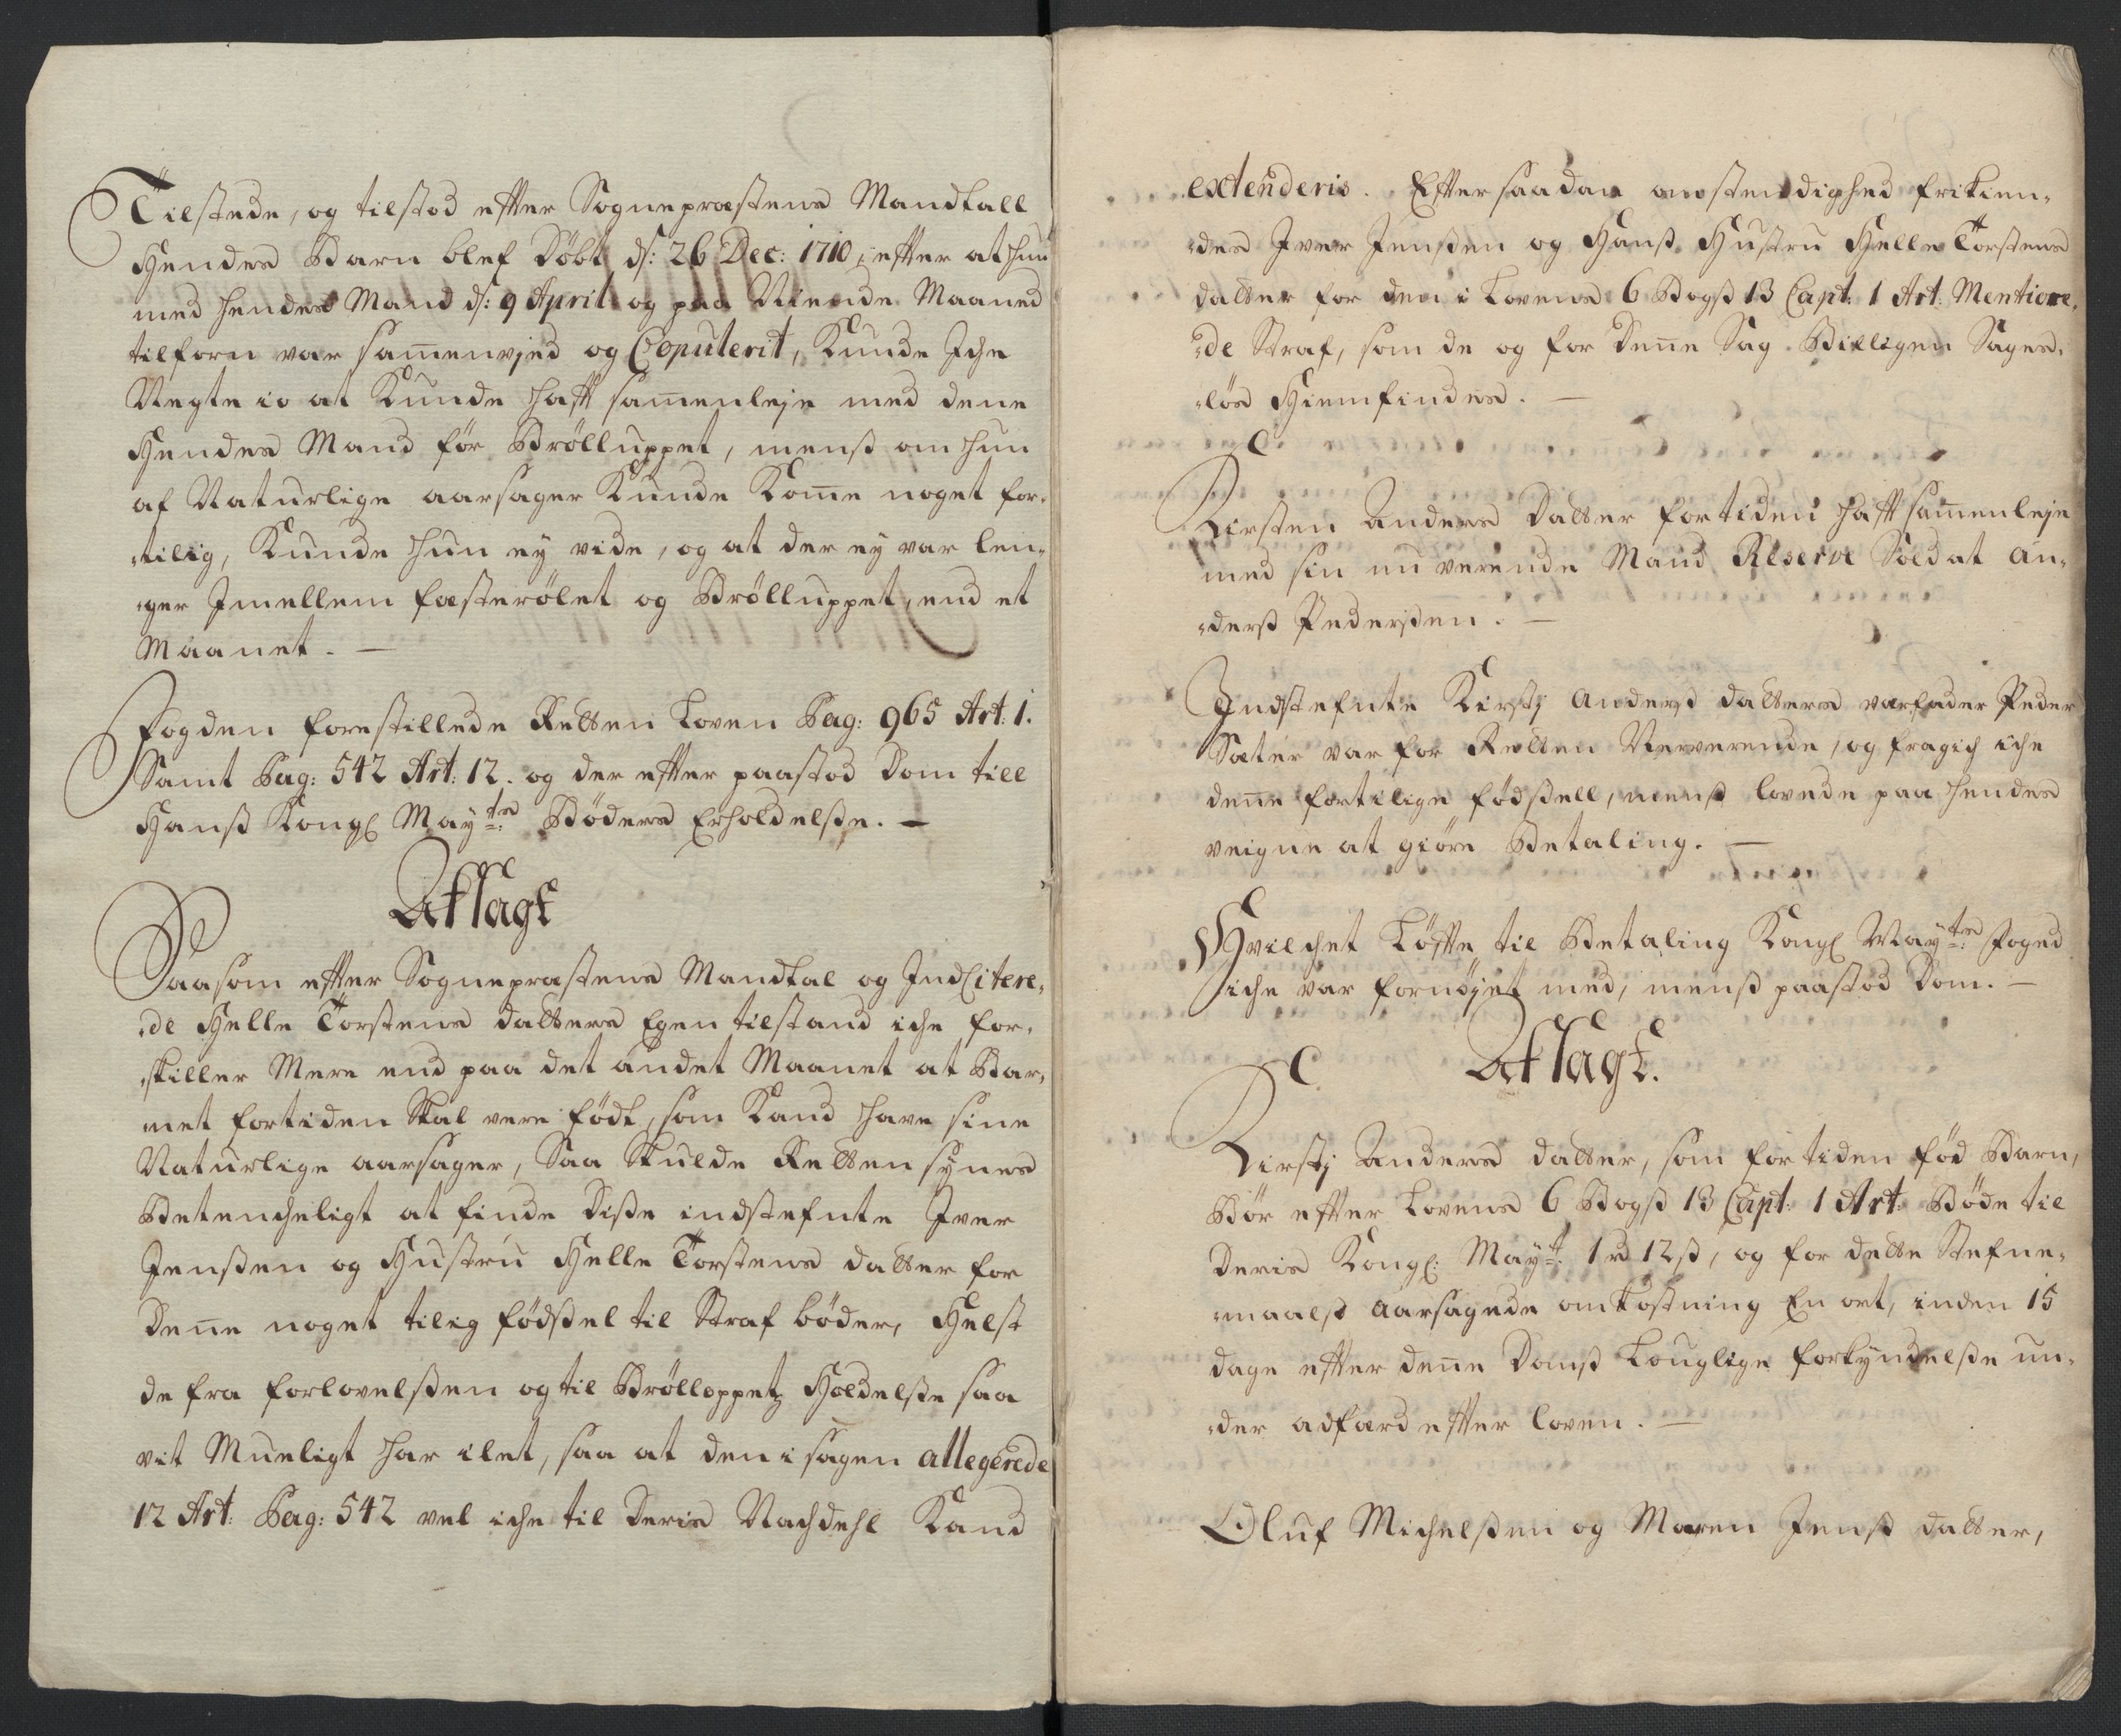 Tilstede, og tilstod effter Sognepræstens Mandtall
Hendes Barn blef Döbt d: 26 Dec: 1710, effter at hun
med hendes Mand d: 9 April og paa Niende Maaned
tilforn var sam̄envjed og Copulerit, Kunde Iche
Negte io at Kunde hafft sam̄enleje med dene
Hendes Mand för Bröllupet, menß om hun
af Naturlige aarsager Kunde Kom̄e noget for-
tilig, Kunde hun ey vide, og at der ey var len-
ger Imellem fæsterölet og Brölluppet, end et
Maanet. —
Fogden forestillede Retten Loven Pag: 965 Art: 1.
Samt Pag: 542 Art: 12. og der effter paastod Dom till
Hanß Kongl Mayts Böders Erholdelße. —
Afsagt
Saasom effter Sognepræstens Mandtal og IndCitere-
de Helle Torstens datters Egen tilstand iche for-
skiller Mere end paa det andet Maanet at Bar-
net fortiden Skal vere födt, som Kand have sine
Naturlige aarsager, Saa Skulde Retten synes
Betencheligt at finde Diße indstefnte Iver
Jenßen og Hustru Helle Torstens datter for
Den̄e noget tilig födßel til Straf böder, Helst
de fra forlovelßen og til Brölloppetz Holdelße saa
vit Mueligt har ilet, saa at den i sagen allegerede
12 Art: Pag: 542 vel iche til Deris Nachdehl Kand
extenderis. Effter saadan omstendighed frikien-
des Iver Jenßen og Hanß Hustru Helle Torstens
datter for den i Lovens 6 Bogß 13 Capt: 1 Art: Mentione-
de Straf, som de og for Den̄e Sag Billigen Sages-
lös Hiemfindes. —
Kirsten Anders Datter fortiden hafft sam̄enleje
med sin nu verende Mand Reserve Soldat An-
derß Pederßen. —
Indstefnte Kirstj Anderß datters værfader Peder
Sæter var for Retten Nerverende, og fragich iche
den̄e fortilige födßell, menß lovede paa hendes
veigne at giöre Betaling. —
Hvilchet Löffte til Betaling Kongl Mayts Foged
iche var fornöjet med, menß paastod Dom. —
Afsagt.
Kirstj Anders datter, som for tiden föd Barn,
Bör effter Lovens 6 Bogß 13 Capt: 1 Art: Böde til
Deris Kongl: Mayt: 1 rd 12ß, og for dette Stefne-
maalß aarsagede omkostning En ort, inden 15
dage effter den̄e Domß Louglige forkyndelße un-
der adfærd effter loven. —
Oluf Michelßen og Maren Jenß datter,